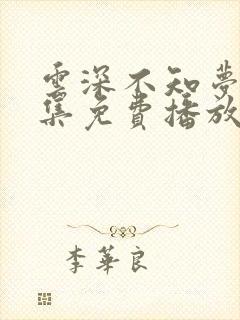 雲深不知夢
集免費播放
李華良